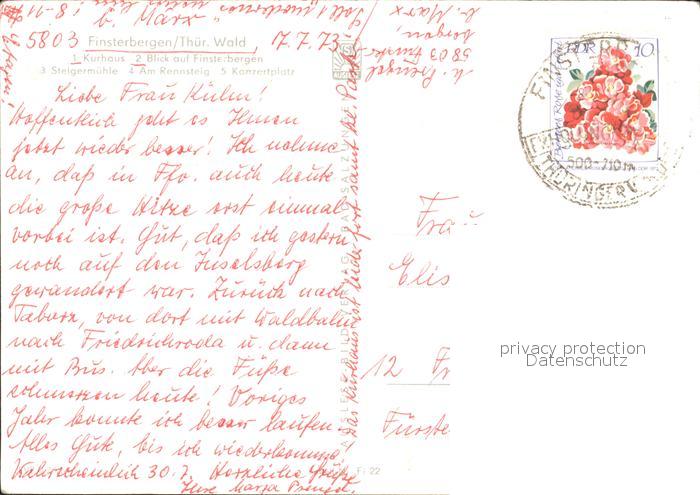 b. Marx"
5803 Finsterbergen/Thür. Wald 17.7.73
1 Kurhaus 2 Blick auf Finsterbergen
3 Steigermühle 4 Am Rennsteig 5 Konzertplatz
Liebe Frau Kühn!
Hoffentlich geht es Ihnen
jetzt wieder besser! Ich nehme
an, daß in Ffo. auch heute
die große Hitze erst einmal
vorbei ist. Gut, daß ich gestern
noch auf den Inselsberg
gewandert war. Zurück nach
Tabarz, von dort mit Waldbahn
nach Friedrichroda u. dann
mit Bus. Aber die Füße
schmerzen heute! Voriges
Jahr konnte ich besser laufen.
Alles Gute, bis ich wiederkomme!
Wahrscheinlich 30.7. Herzliche Grüße
Ihre
Das Kurhaus ist leider fort samt Park
BAD SALZUNGEN
Fi 22
b. Marx
5803
DDR 10
500-710 m
THÜRINGER
Frau
Elis
12 Fr
Fürste
privacy protection
Datenschutz